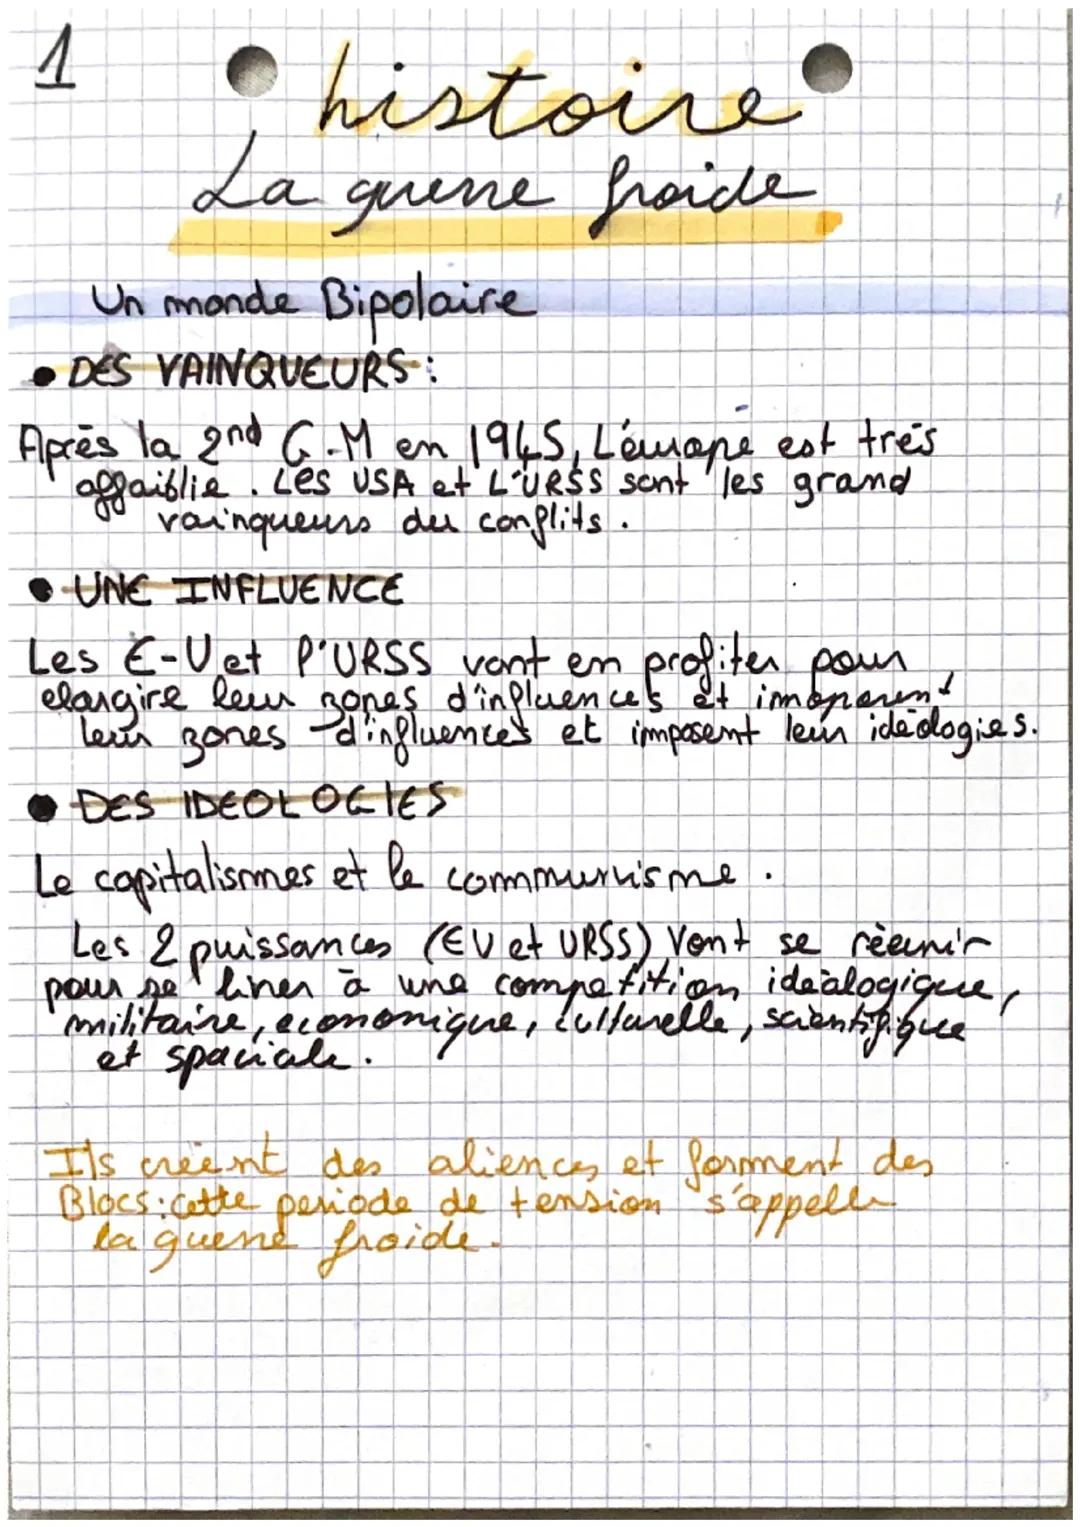 1
histoire
La guerre froide
Un monde Bipolaire
• DES VAINQUEURS :
Après la 2nd G-M en 1945, L'éurope est très
affaiblie. Les USA et L'URSS sont les grand
vainqueurs du conflits.
• UNE INFLUENCE
Les E-U et l'URSS vont en profiter pour
elargire leur zones d'influences et imoposent
leur zones d'influences et imposent leur idéologies.
• DES IDEOLOGIES
Le capitalismes et le communisme.
Les 2 puissances (EU et URSS) Vont se réeunir
pour se liver à une competition idéologique,
militaire, economique, culturelle, scientifique
et spaciale.
Ils creent des aliences et forment des
Blocs : cette periode de tension s'appelle
la guerre froide.